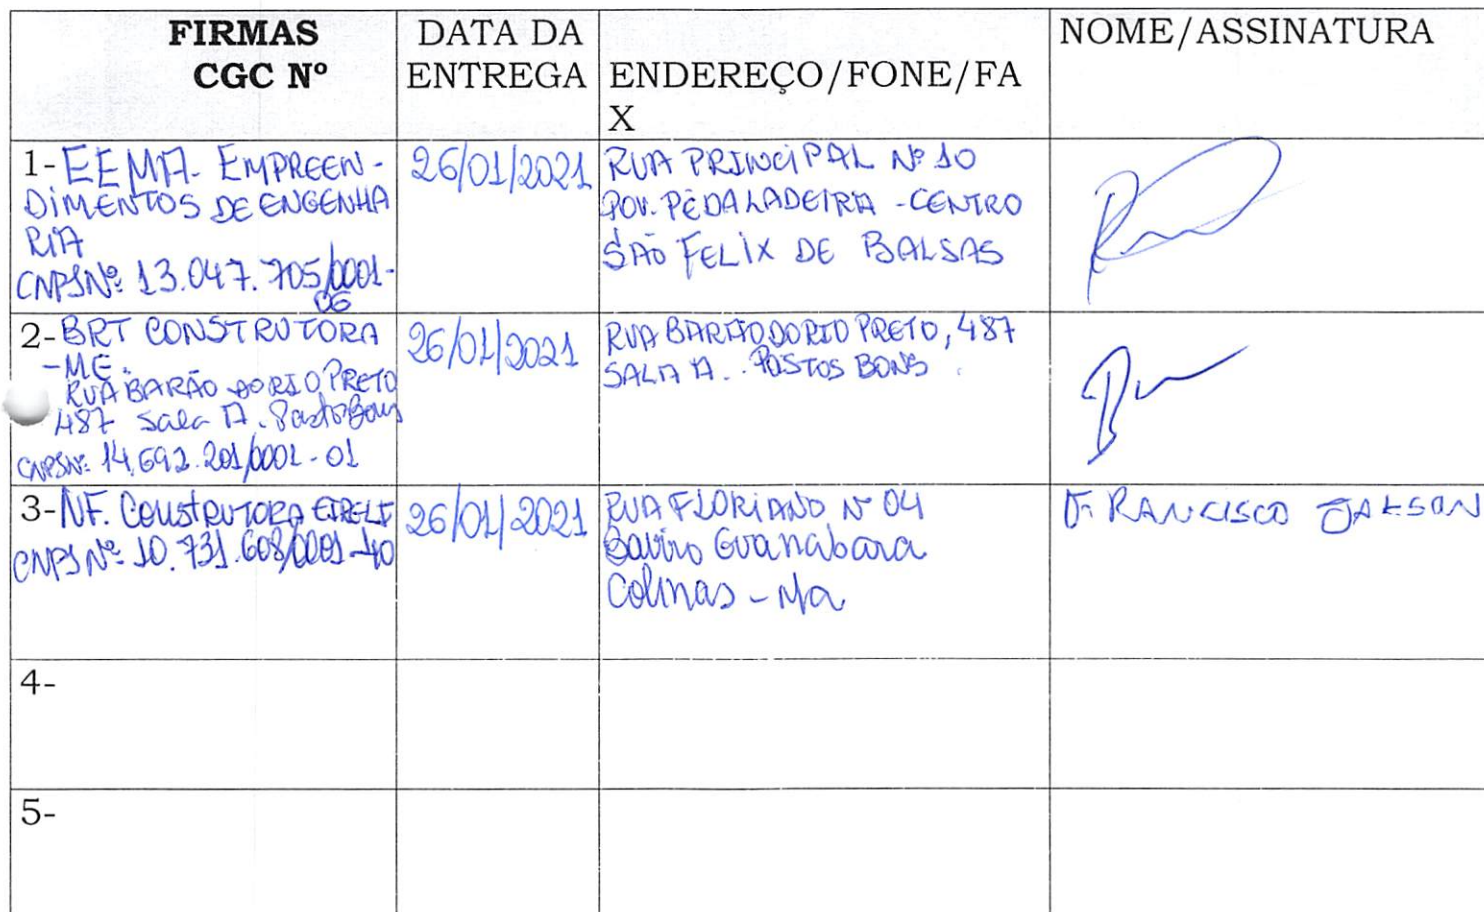 FIRMAS
CGC Nº
DATA DA
ENTREGA
ENDEREÇO/FONE/FA
X
NOME/ASSINATURA
1- EEMA - EMPREEN-
DIMENTOS DE ENGENHA
RIA
CNPJ Nº: 13.047.705/0001-
06
26/01/2021
RUA PRINCIPAL Nº 10
POV. PÉ DA LADEIRA - CENTRO
SÃO FELIX DE BALSAS
2- BRT CONSTRUTORA
- ME.
RUA BARÃO DO RIO PRETO
487 Sala A. Pastos Bons
CNPJ Nº: 14.692.201/0001-01
26/01/2021
RUA BARÃO DO RIO PRETO, 487
SALA A. PASTOS BONS
3- NF. CONSTRUTORA EIRELI
CNPJ Nº: 10.731.608/0001-40
26/01/2021
RUA FLORIANO Nº 04
Bairro Guanabara
Colinas - Ma
FRANCISCO
4-
5-